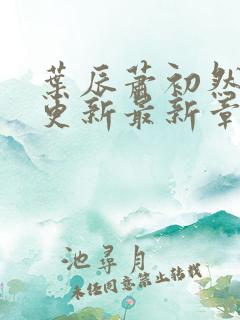 葉辰蕭初然
更新最新章
池尋月
未经同意禁止转载